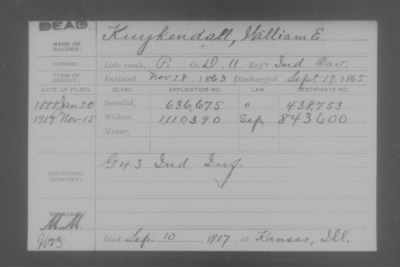 DEAD.
NAME OF SOLDIER: Kuykendall, William E.
SERVICE: Late rank, P. Co. D. 11 Reg't Ind Cav.
TERM OF SERVICE: Enlisted Nov 28, 1863 Discharged Sept 19, 1865
DATE OF FILING. CLASS. APPLICATION NO. LAW. CERTIFICATE NO.
1888 Jan 20 Invalid, 636,675 438,753
1917 Nov 15 Widow, 1110390 Sep. 843600
Minor,
ADDITIONAL SERVICES: G 43 Ind. Inf.
M.M.
Died Sep. 10, 1917, at Kansas, Ill.